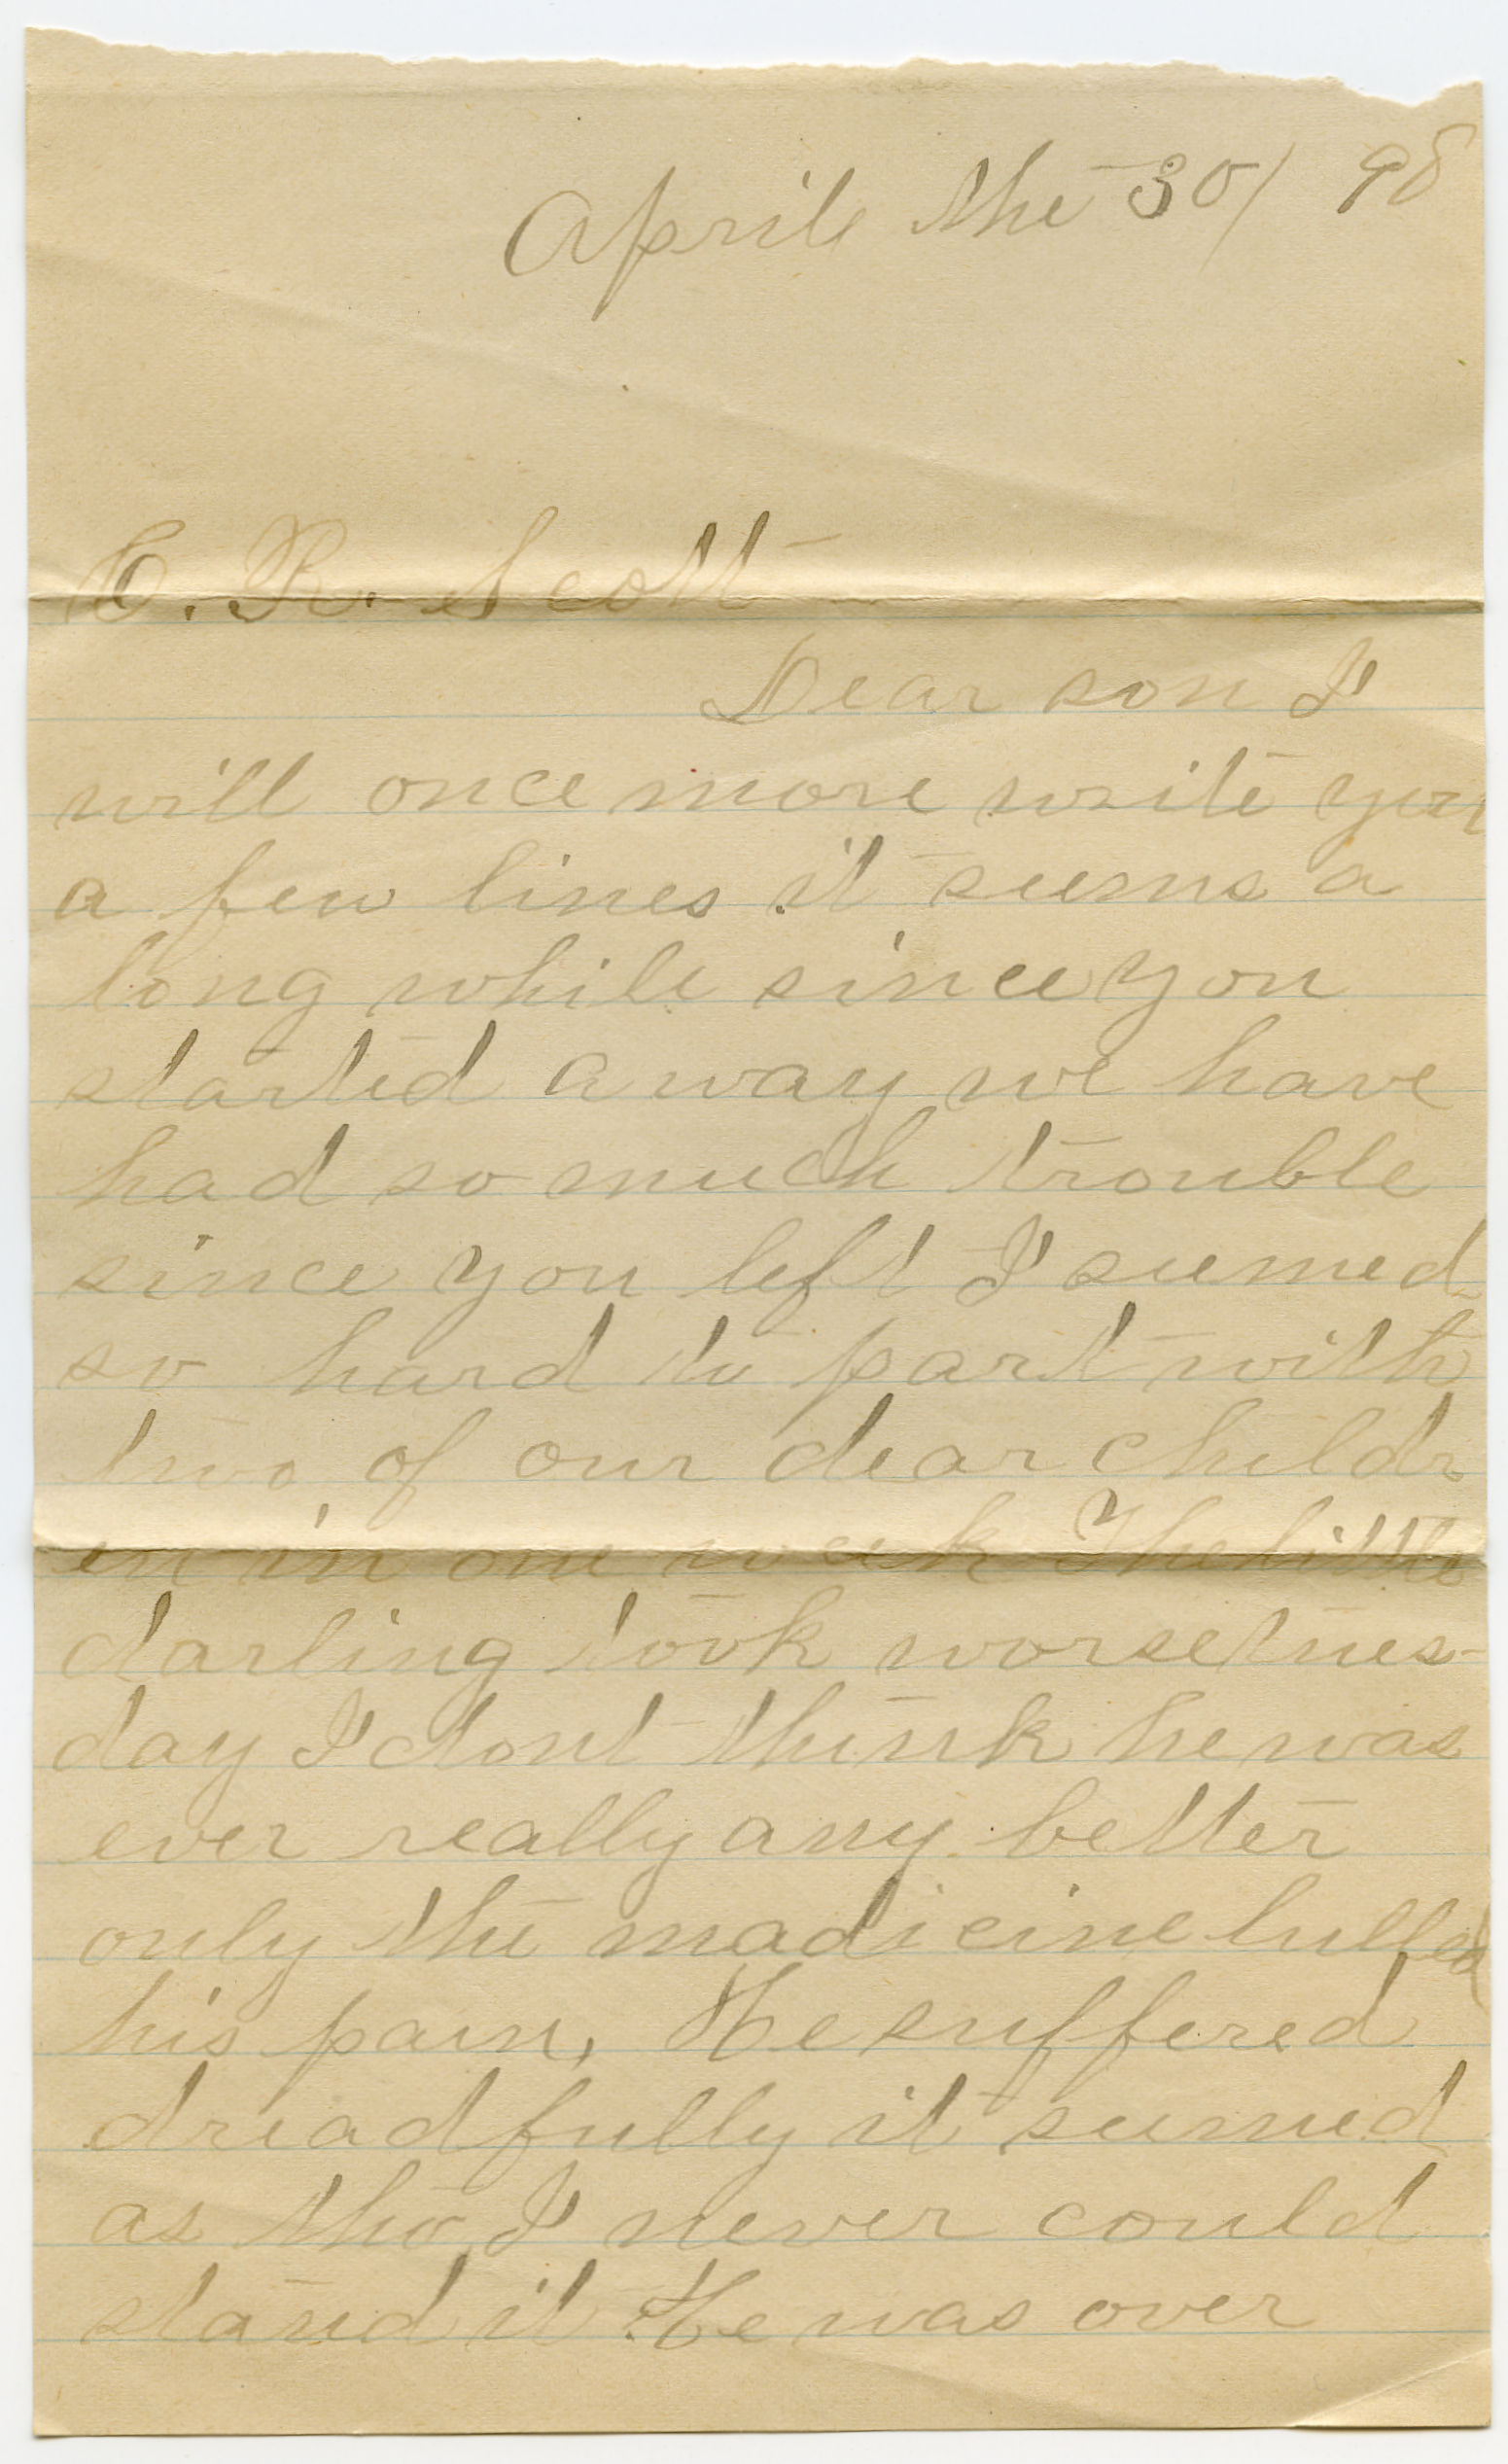 April the 30/ 98
C. R. Scott
Dear son I
will once more write you
a few lines it seems a
long while since you
started a way we have
had so much trouble
since you left I seemed
so hard to part with
two of our dear childr
en in one week The little
darling took worse tues-
day I dont think he was
ever really any better
only the madicine lulled
his pain, He suffered
dreadfully it seemed
as tho I never could
stand it He was over